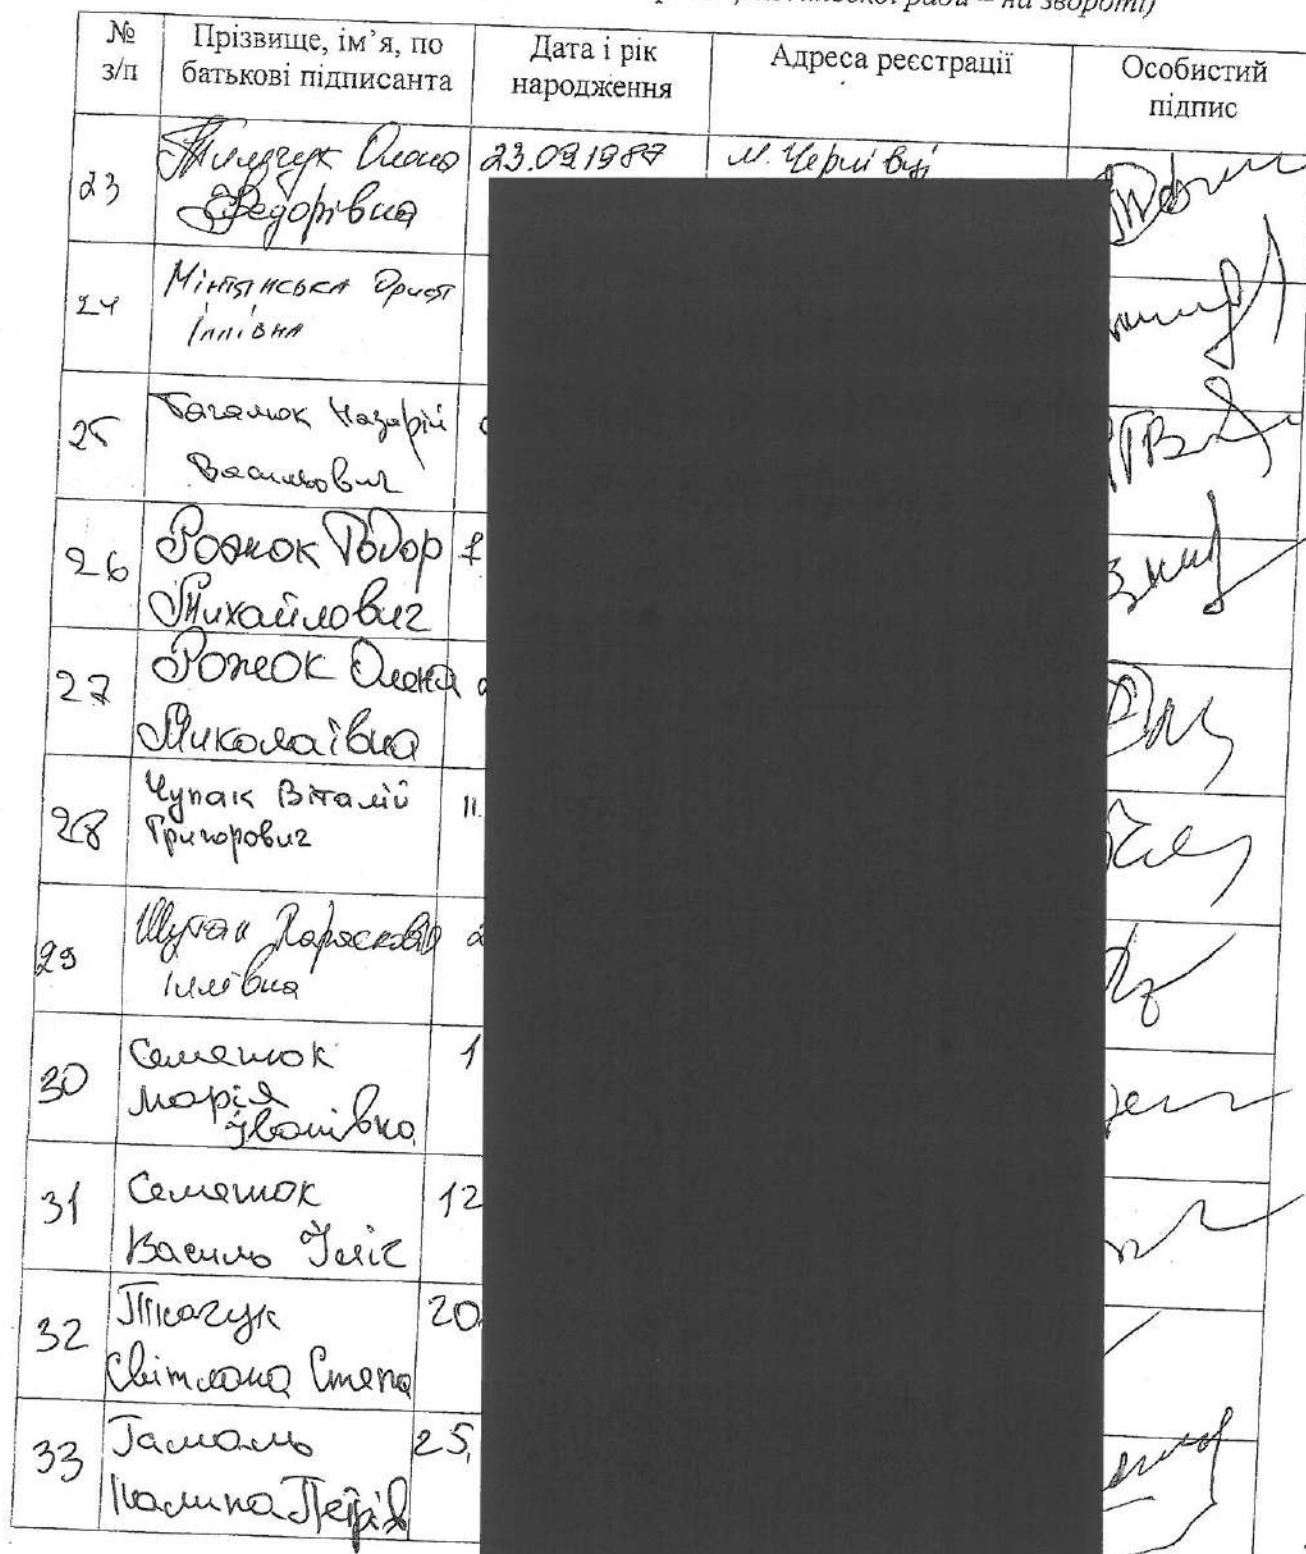 ради – на звороті)
№ з/п
Прізвище, ім’я, по батькові підписанта
Дата і рік народження
Адреса реєстрації
Особистий підпис
23
Олена
Федорівна
23.09.1987
м. Чернівці
24
Мінтянська
Іллівна
25
Назарій
Васильович
26
Рожок Тодор
Михайлович
27
Рожок Олена
Миколаївна
28
Чупак Віталій
Григорович
11.
29
Шутак Параскева
Іллівна
30
Семенюк
Марія
Іванівна
1
31
Семенюк
Василь Ілліч
12
32
Ткачук
Світлана Степа
20
33
Гамаль
Калина Петрів
25,